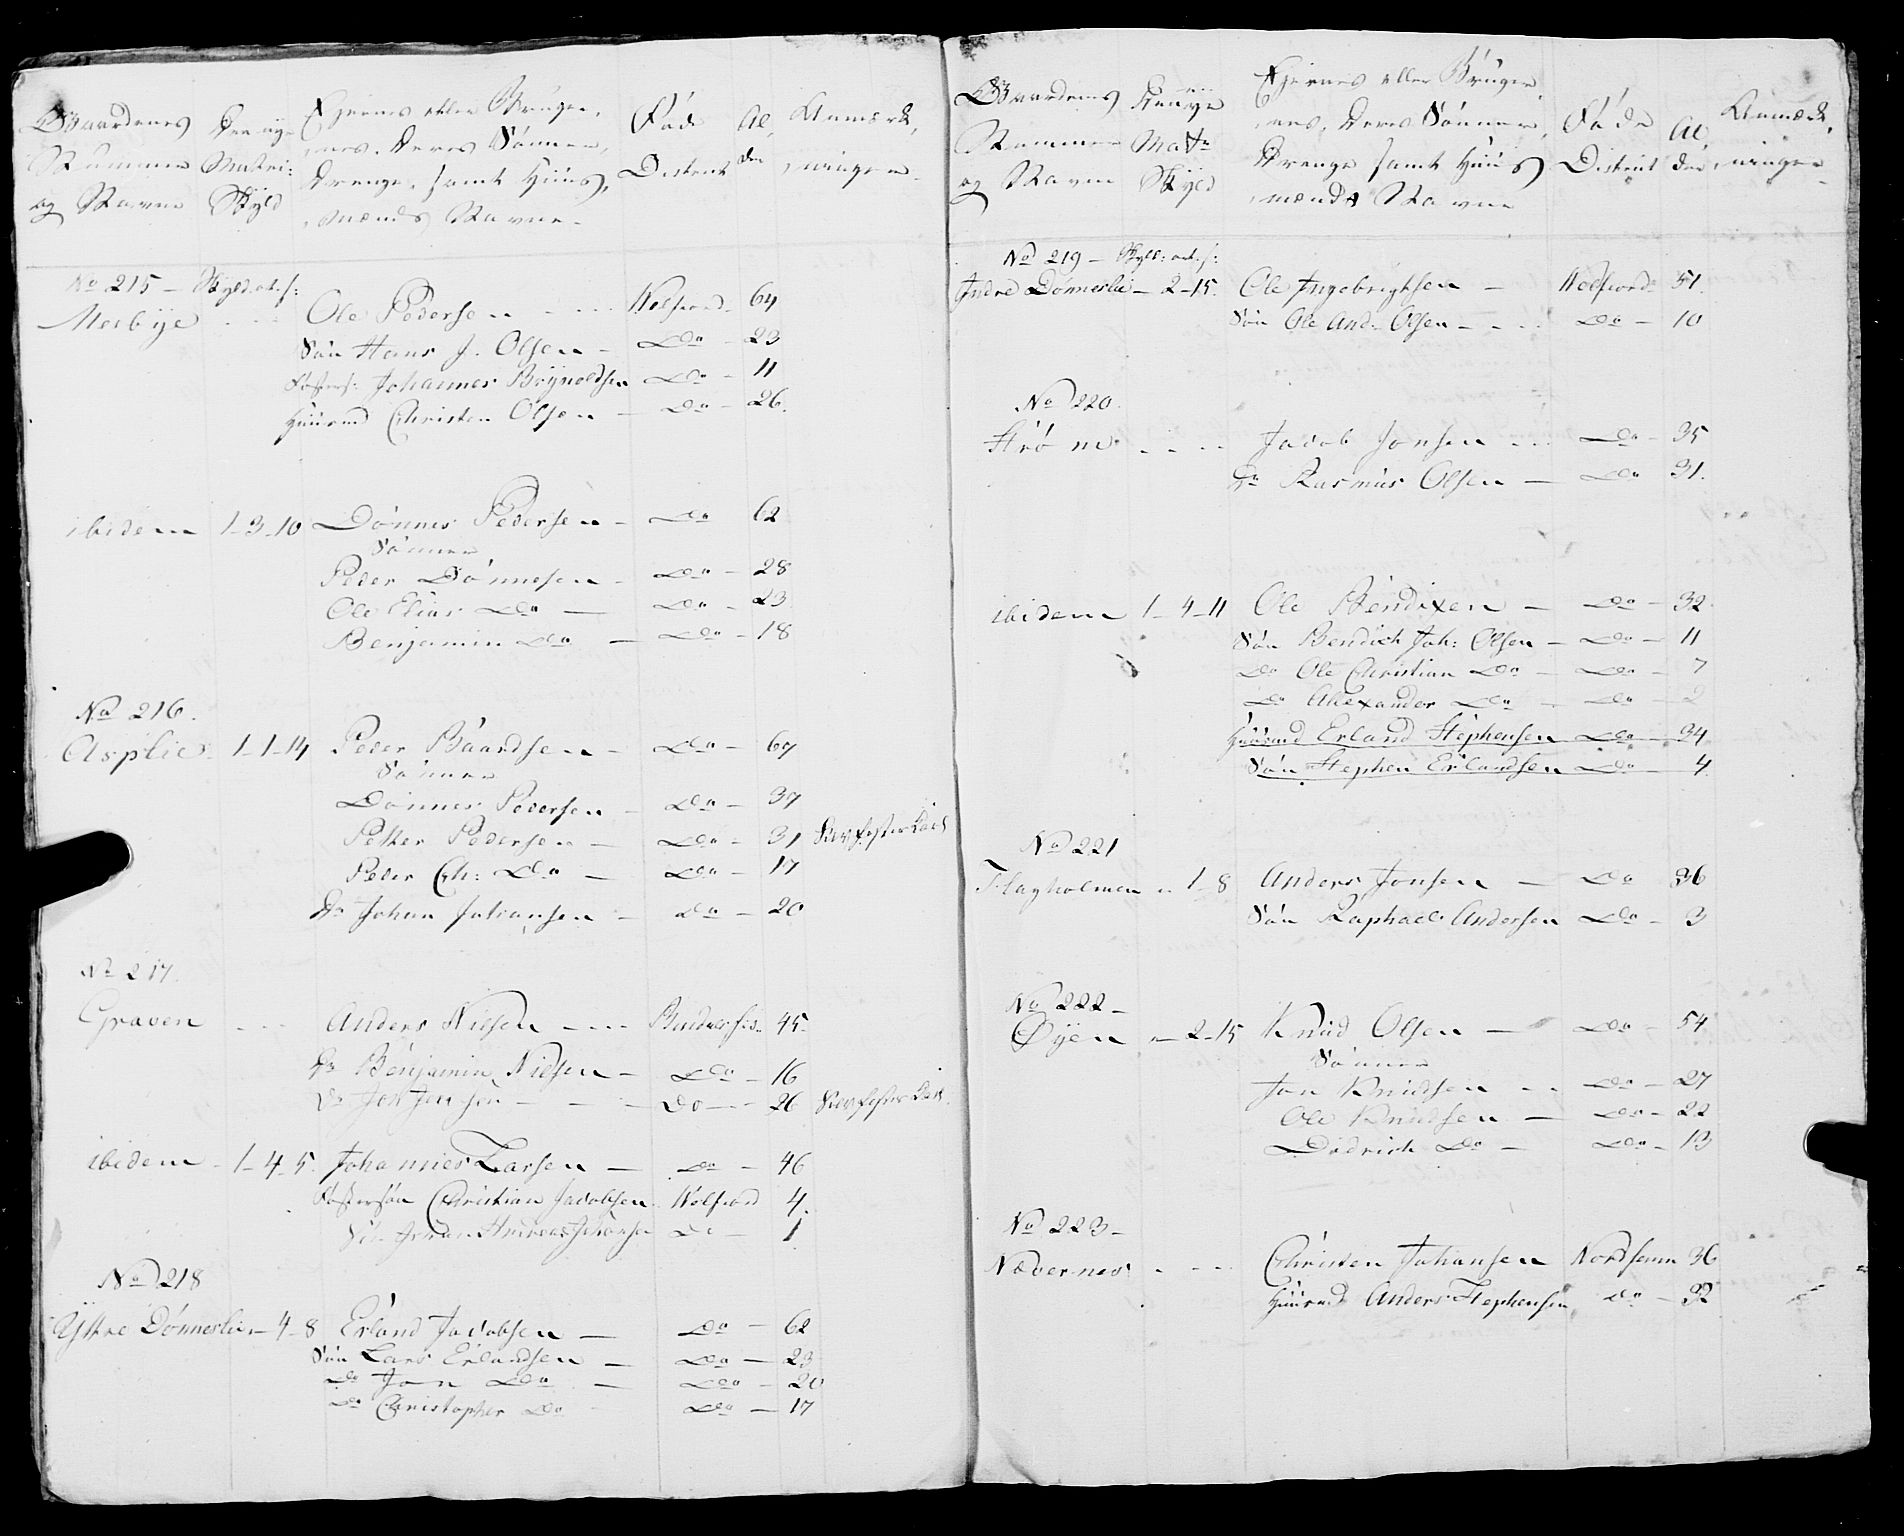 Gaardenes
Nummer
og Navne
Den nye
Matri:
Skyld
Ejernes eller Bruger,
nes, deres Sønner,
Drenge, samt Huus,
mænds Navne
Føde
Distrikt
Al,
der
Anmærk,
ninger
No 215 - Skyld: ort. s:
Ole Pedersen - - - Velfiord - 64
Søn Hans J. Olsen - Do - 23
Fosters: Johannes Brynoldsen Do - 11
Huusmd Christen Olsen - Do - 26.
ibidem 1-3-10 Dønnes Pedersen - Do 62
Sønner
Peder Dønnesen - Do - 28
Ole Elias Do - Do - 23
Benjamin Do - Do - 18
No 216.
Asplie - 1-1-14 Peder Baardsen - Do - 67
Sønner
Dønnes Pedersen - Do - 37
Petter Pedersen - Do - 31
Peder Ch: Do - Do - 17
Dr Johan Johansen - Do - 20
No 217.
Graven - - - Anders Nielsen - - - 45-
Dr Benjamin Nielsen - Do - 16
Dr Jon Jensen - - - Do - 26
ibidem - 1-4-5. Johannes Larsen - Do - 46
Fostersøn Christian Jacobsen Velfiord 4.
Do - 1
No 218
Yttre Dønneslie - 4-8 Erland Jacobsen - Do - 62
Søn Lars Erlandsen - Do - 23
Do Jon Do - Do - 20
Do Christopher Do - Do - 17
Gaardenes
Nummer
og Navne
Den nye
Matr
Skyld
Ejernes eller Bruger,
nes, deres Sønner,
Drenge samt Huus
mænds Navne
Føde
Distrikt
Al,
der
Anmærk,
ninger
No 219 - Skyld: ort. s:
Indre Dønneslie - 2-15. Ole Ingebrigtsen - Velfiord 51.
Søn Ole And: Olsen - - - Do - 10
No 220.
Strøm - - - Jacob Jonsen - - - Do - 35
Dr Rasmus Olsen - Do 31.
ibidem 1-4-11 Ole Bendixen - Do - 32.
Søn Bendich Joh: Olsen - Do - 11
Do Ole Christian Do - Do - 7
Do Allexander Do - Do - 2
Huusmd Erland Stephensen Do - 34
Søn Stephen Erlandsen Do - 4
No 221
Flagholmen - 1-8 Anders Jonsen - Do 36
Søn Raphael Andersen Do - 3
No 222 -
Øyen - 2-15 Knud Olsen - Do - 54
Sønner
Jon Knudsen - - Do - 27
Ole Knudsen - Do - 22
Didrich Do - Do - 13
No 223 -
Nævernes - - - Christen Johansen 36
Huusmd Anders Stephensen Do - 32